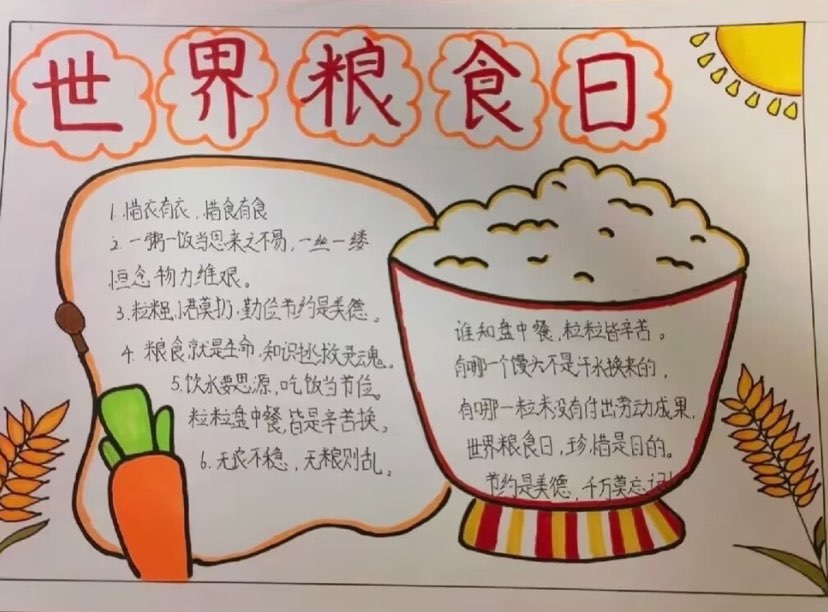 世界粮食日
1.惜衣有衣,惜食有食
2.一粥一饭当思来之不易,一丝一缕
恒念物力维艰。
3.粒粒莫扔,勤俭节约是美德。
4.粮食就是生命,知识拯救灵魂。
5.饮水要思源,吃饭当节俭。
粒粒盘中餐,皆是辛苦换。
6.无农不稳,无粮则乱。
谁知盘中餐,粒粒皆辛苦。
有哪一个馒头不是汗水换来的,
有哪一粒米没有付出劳动成果,
世界粮食日,珍惜是目的。
节约是美德,千万莫忘记!